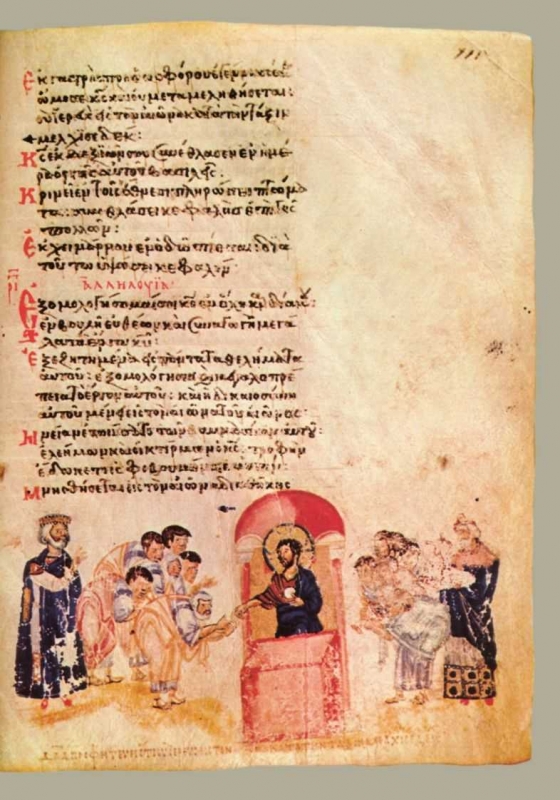 Ἐκ γαστρὸς πρὸ ἑωσφόρου ἐγέννησά σε
ὤμοσε κς καὶ οὐ μεταμεληθήσεται:
σὺ ἱερεὺς εἰς τὸν αἰῶνα κατὰ τὴν τάξιν
μελχισεδεκ:
Κς ἐκ δεξιῶν σου συνέθλασεν ἐν ἡμέ
ρα ὀργῆς αὐτοῦ βασιλεῖς
Κρινεῖ ἐν τοῖς ἔθνεσι πληρώσει πτώμα
τα: συνθλάσει κεφαλὰς ἐπὶ γῆς
πολλῶν:
Ἐκ χειμάρρου ἐν ὁδῶ πίεται: διὰ
τοῦτο ὑψώσει κεφαλήν
ΑΛΛΗΛΟΥΙΑ
Ἐξομολογήσομαί σοι κε ἐν ὅλη καρδία μου:
ἐν βουλῆ εὐθέων καὶ συναγωγῆ μεγά
λα τὰ ἔργα κυ:
Ἐξεζητημένα εἰς πάντα τὰ θελήματα
αὐτοῦ: ἐξομολόγησις καὶ μεγαλοπρέ
πεια τὸ ἔργον αὐτοῦ: καὶ ἡ δικαιοσύνη
αὐτοῦ μένει εἰς τὸν αἰῶνα τοῦ αἰῶνος:
Μνείαν ἐποιήσατο τῶν θαυμασίων αὐτοῦ:
ἐλεήμων καὶ οἰκτίρμων ὁ κς: τροφὴν
ἔδωκε τοῖς φοβουμένοις αὐτόν:
Μνησθήσεται εἰς τὸν αἰῶνα διαθήκης